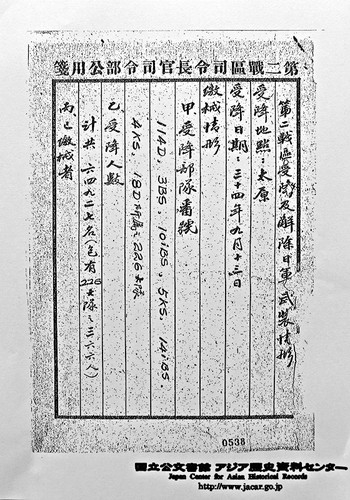 第二戰區司令長官司令部公用箋
第二戰區受降及解除日軍武裝情形
受降地點:太原
受降日期:三十四年九月十三日
繳械情形
甲 受降部隊番號
114D, 3BS, 10iBS, 5KS, 14iBS.
4KS, 18D
226大隊
乙 受降人數
計共 六四九二七名(包有226大隊:三六六人)
丙 已繳械者
0538
国立公文書館 アジア歴史資料センター
Japan Center for Asian Historical Records
http://www.jacar.go.jp